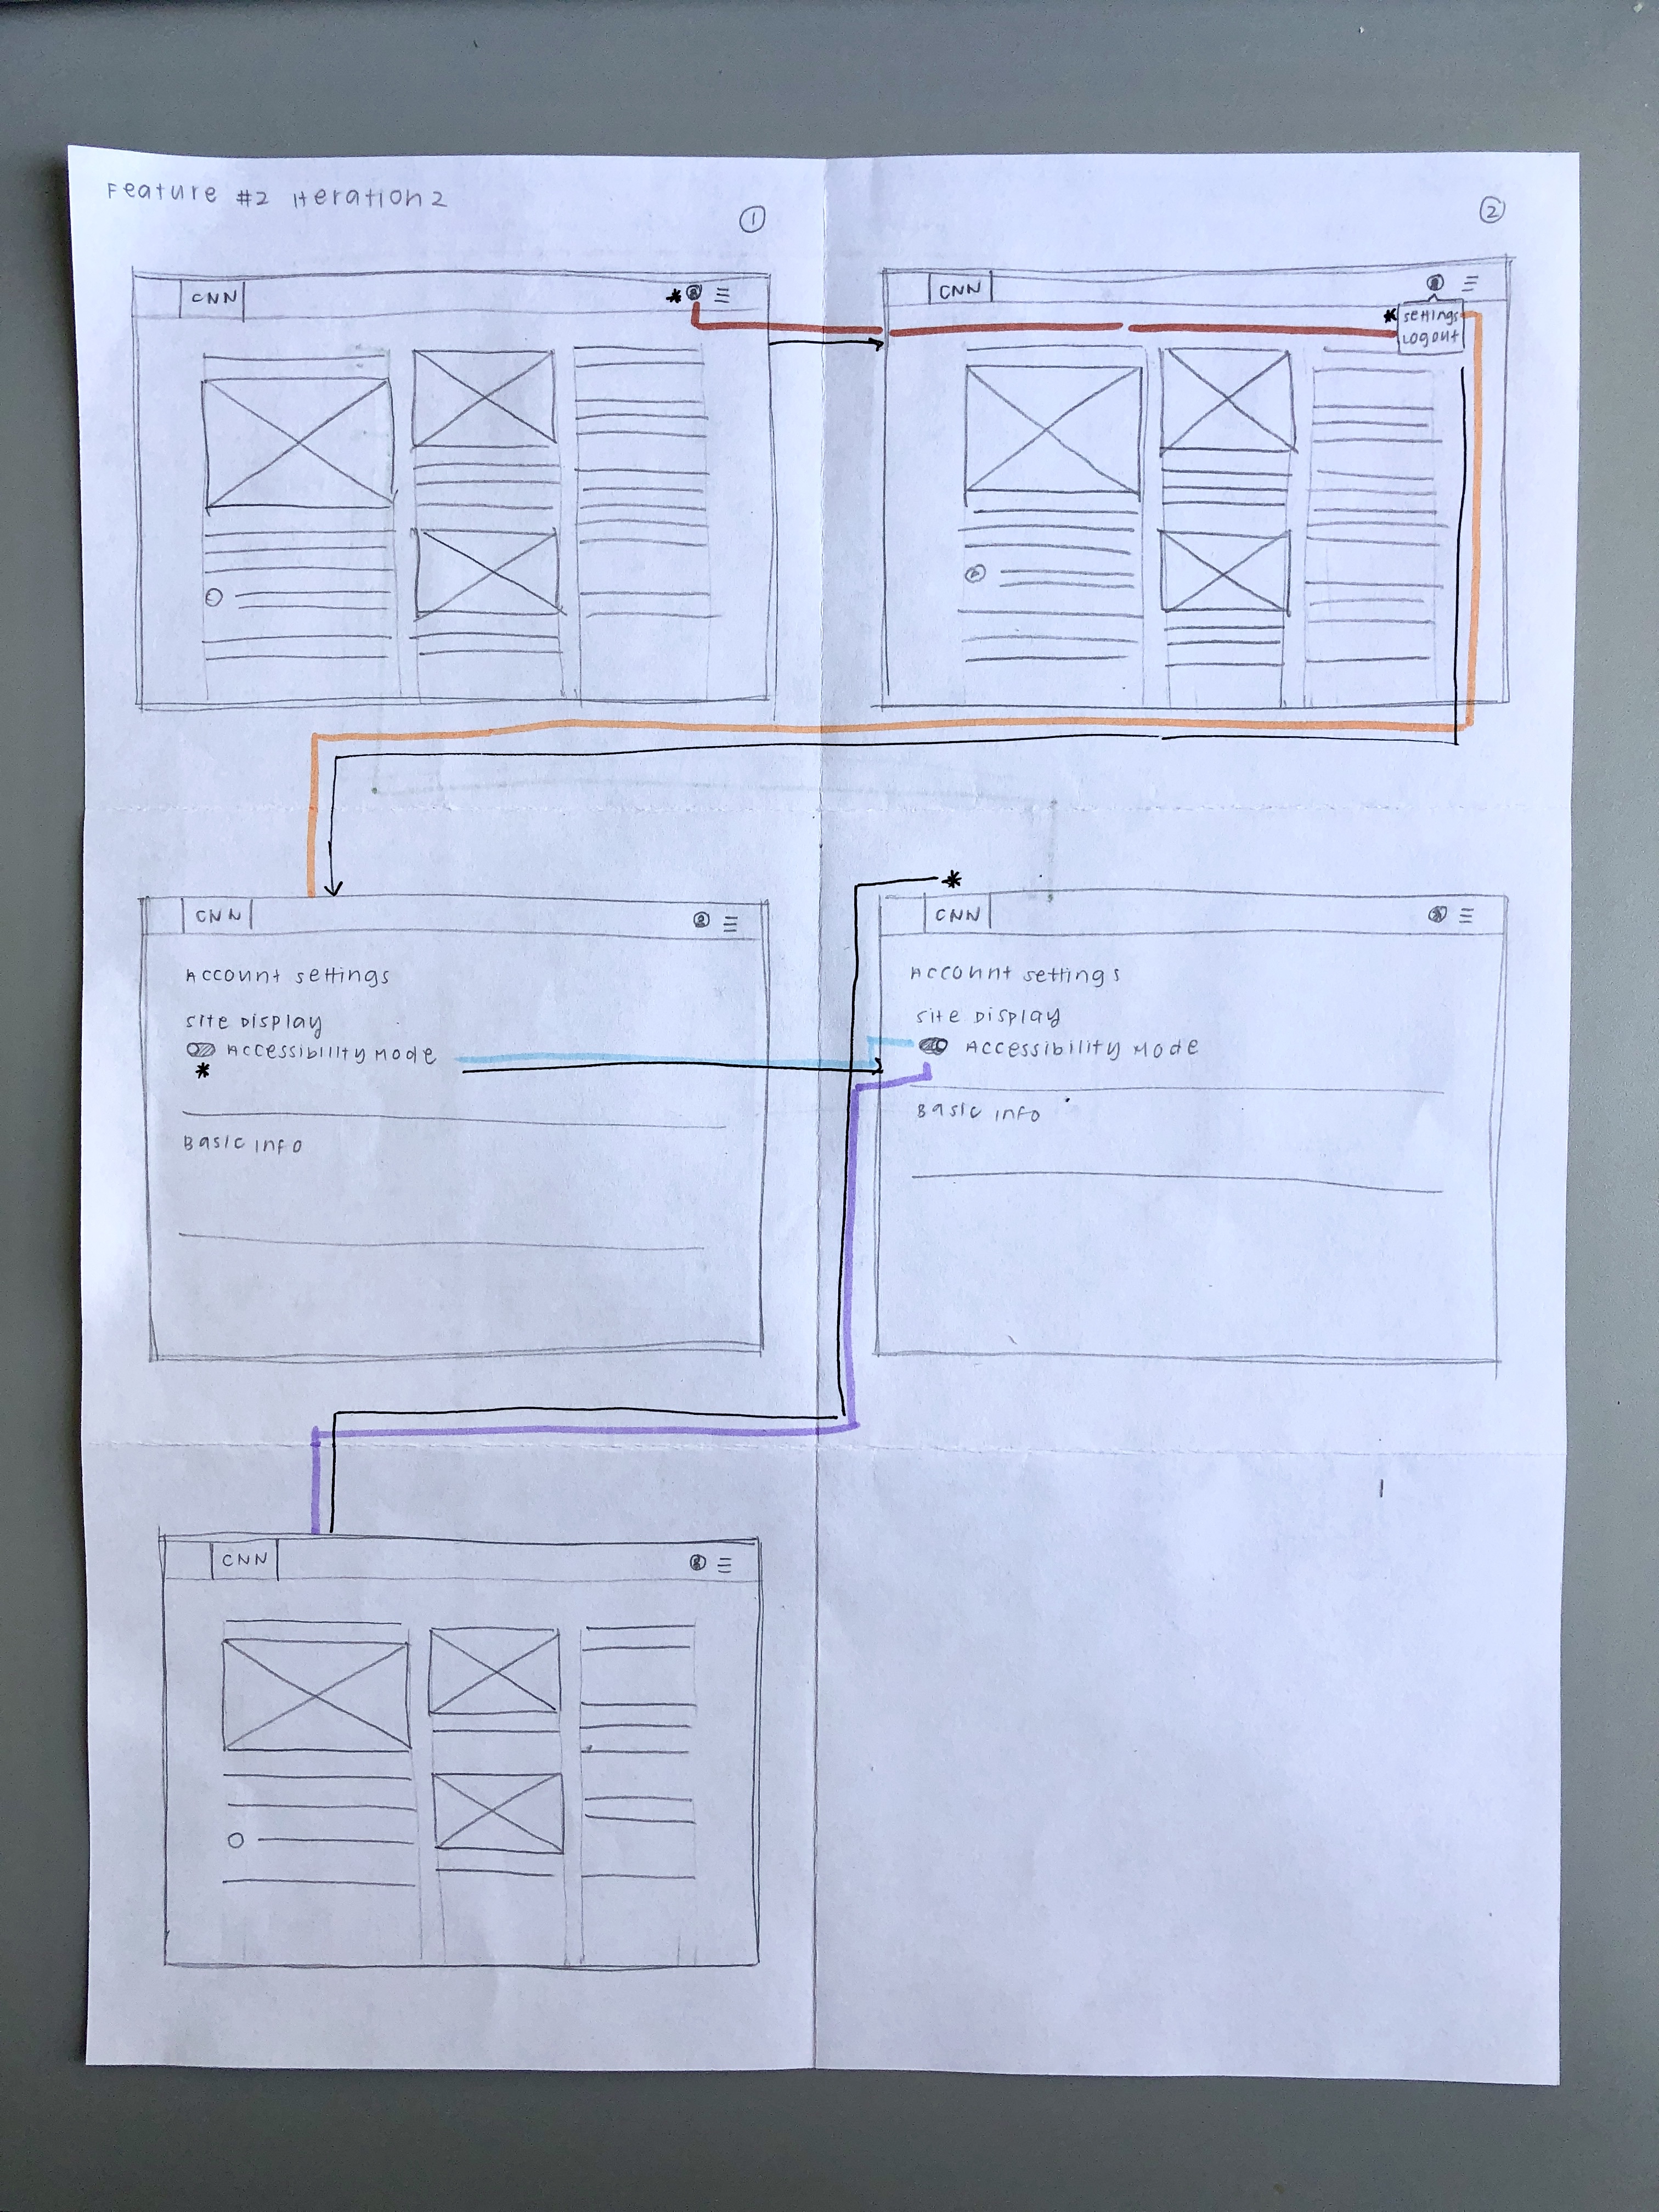 Feature #2 Iteration 2
1
2
CNN
*
CNN
*
Settings
Logout
CNN
Account settings
Site Display
Accessibility Mode
*
Basic info
*
CNN
Account settings
Site Display
Accessibility Mode
Basic info
CNN